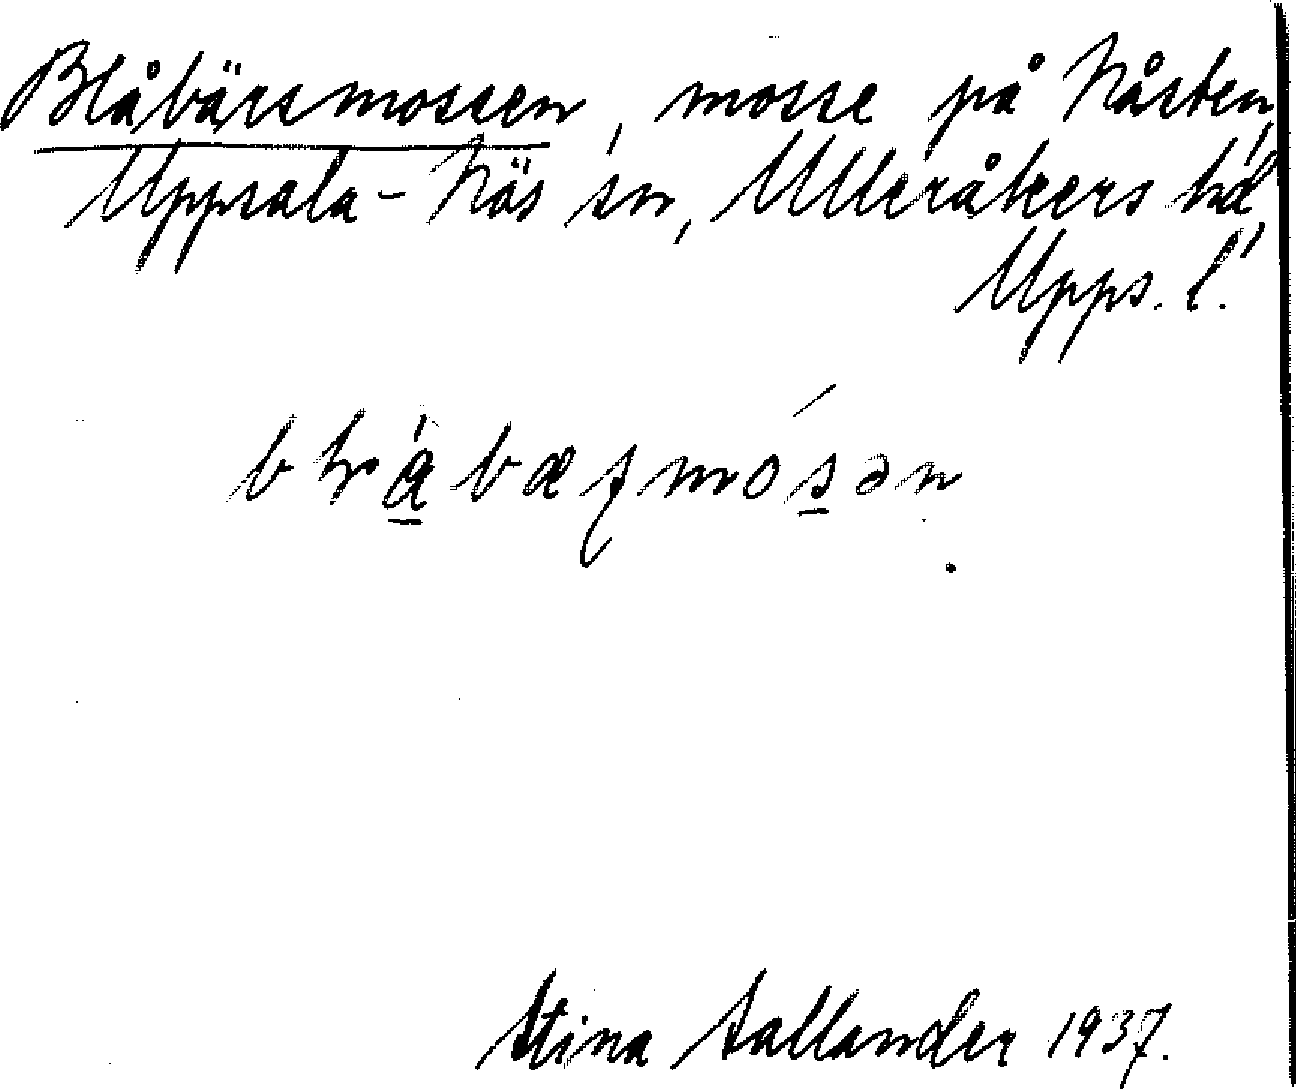 Blåbärsmossen, mosse på Nåsten,
Uppsala-Näs sn, Ulleråkers hd,
Upps. l.
Stina Sallander 1937.